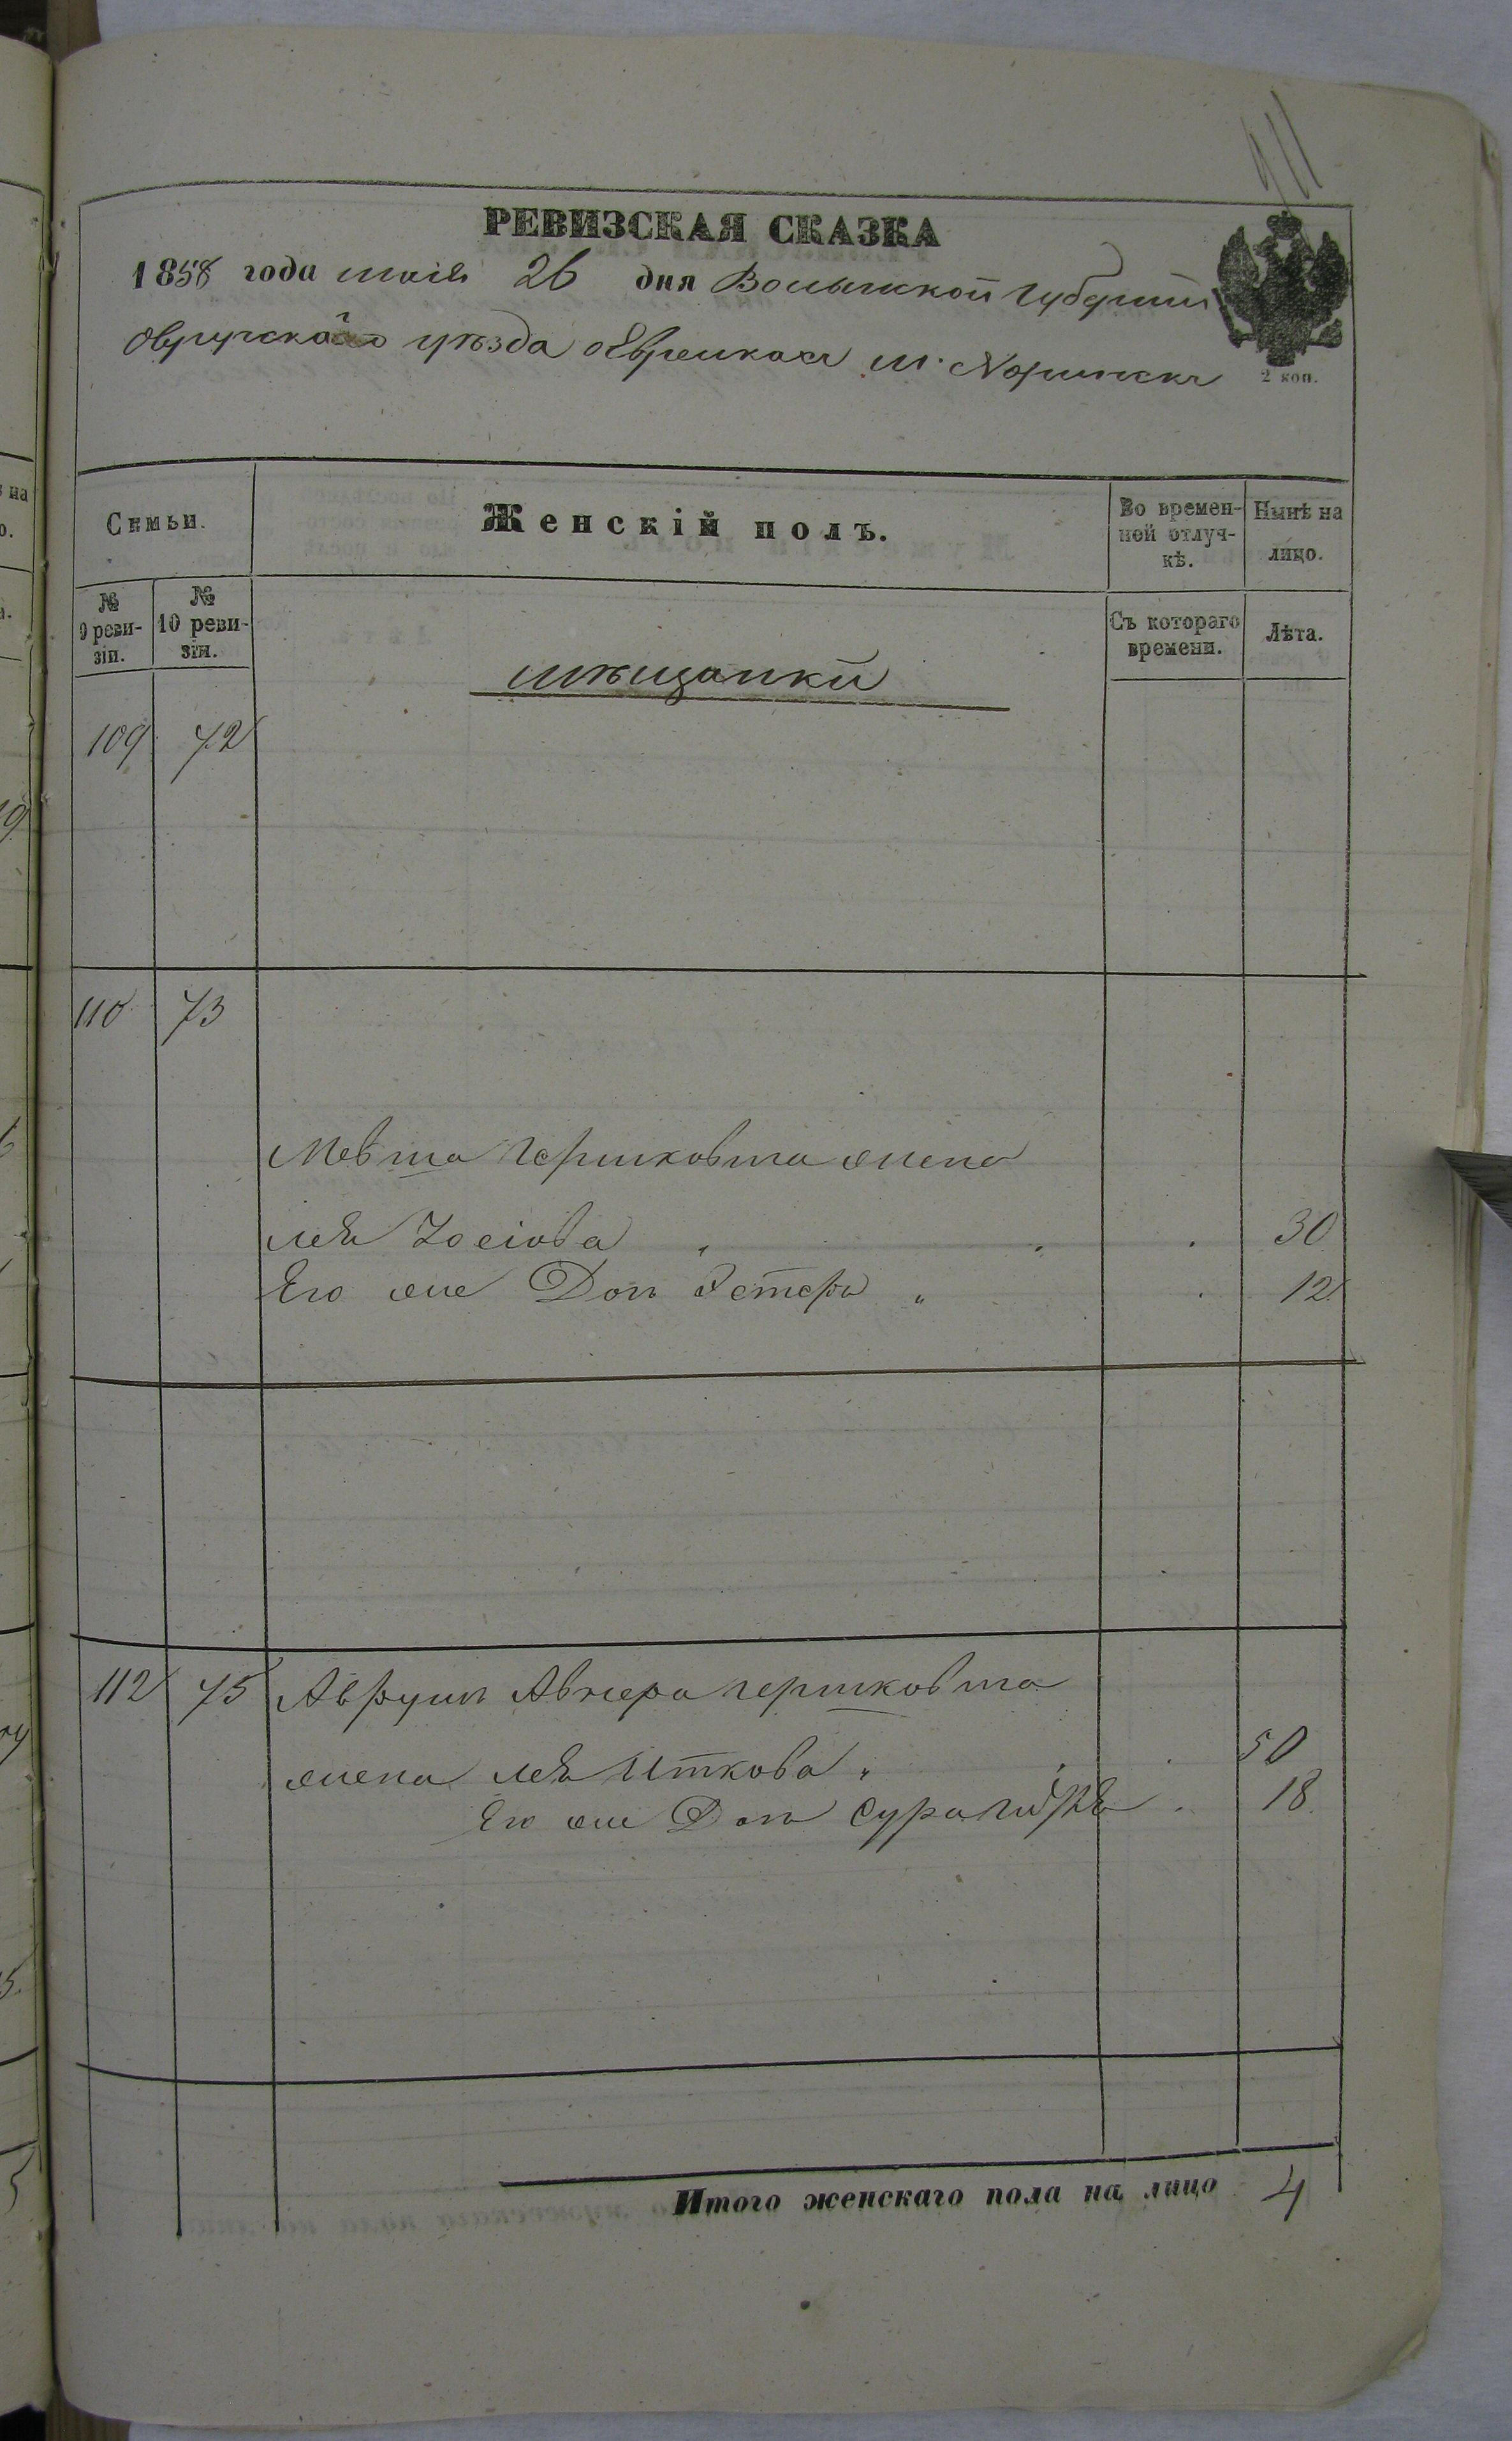 911
РЕВИЗСКАЯ СКАЗКА
1858 года маія 26 дня Волынской Губерніи
Овручскаго уѣзда о Евреихах м. Норинска
2 коп.
Семьи.
Женскій полъ.
Во времен-
ной отлуч-
кѣ.
Нынѣ на
лицо.
№
9 реви-
зіи.
№
10 реви-
зіи.
Съ котораго
времени.
Лѣта.
мѣщанки
109 72
110 73
Гершковича жена
лея Іосіова " 30
Его же Доч Эстера " 12
112 75 Аврум Авнера гершковича
жена лея Иткова " 50
Его же Доч Сура 18
Итого женскаго пола на лицо 4